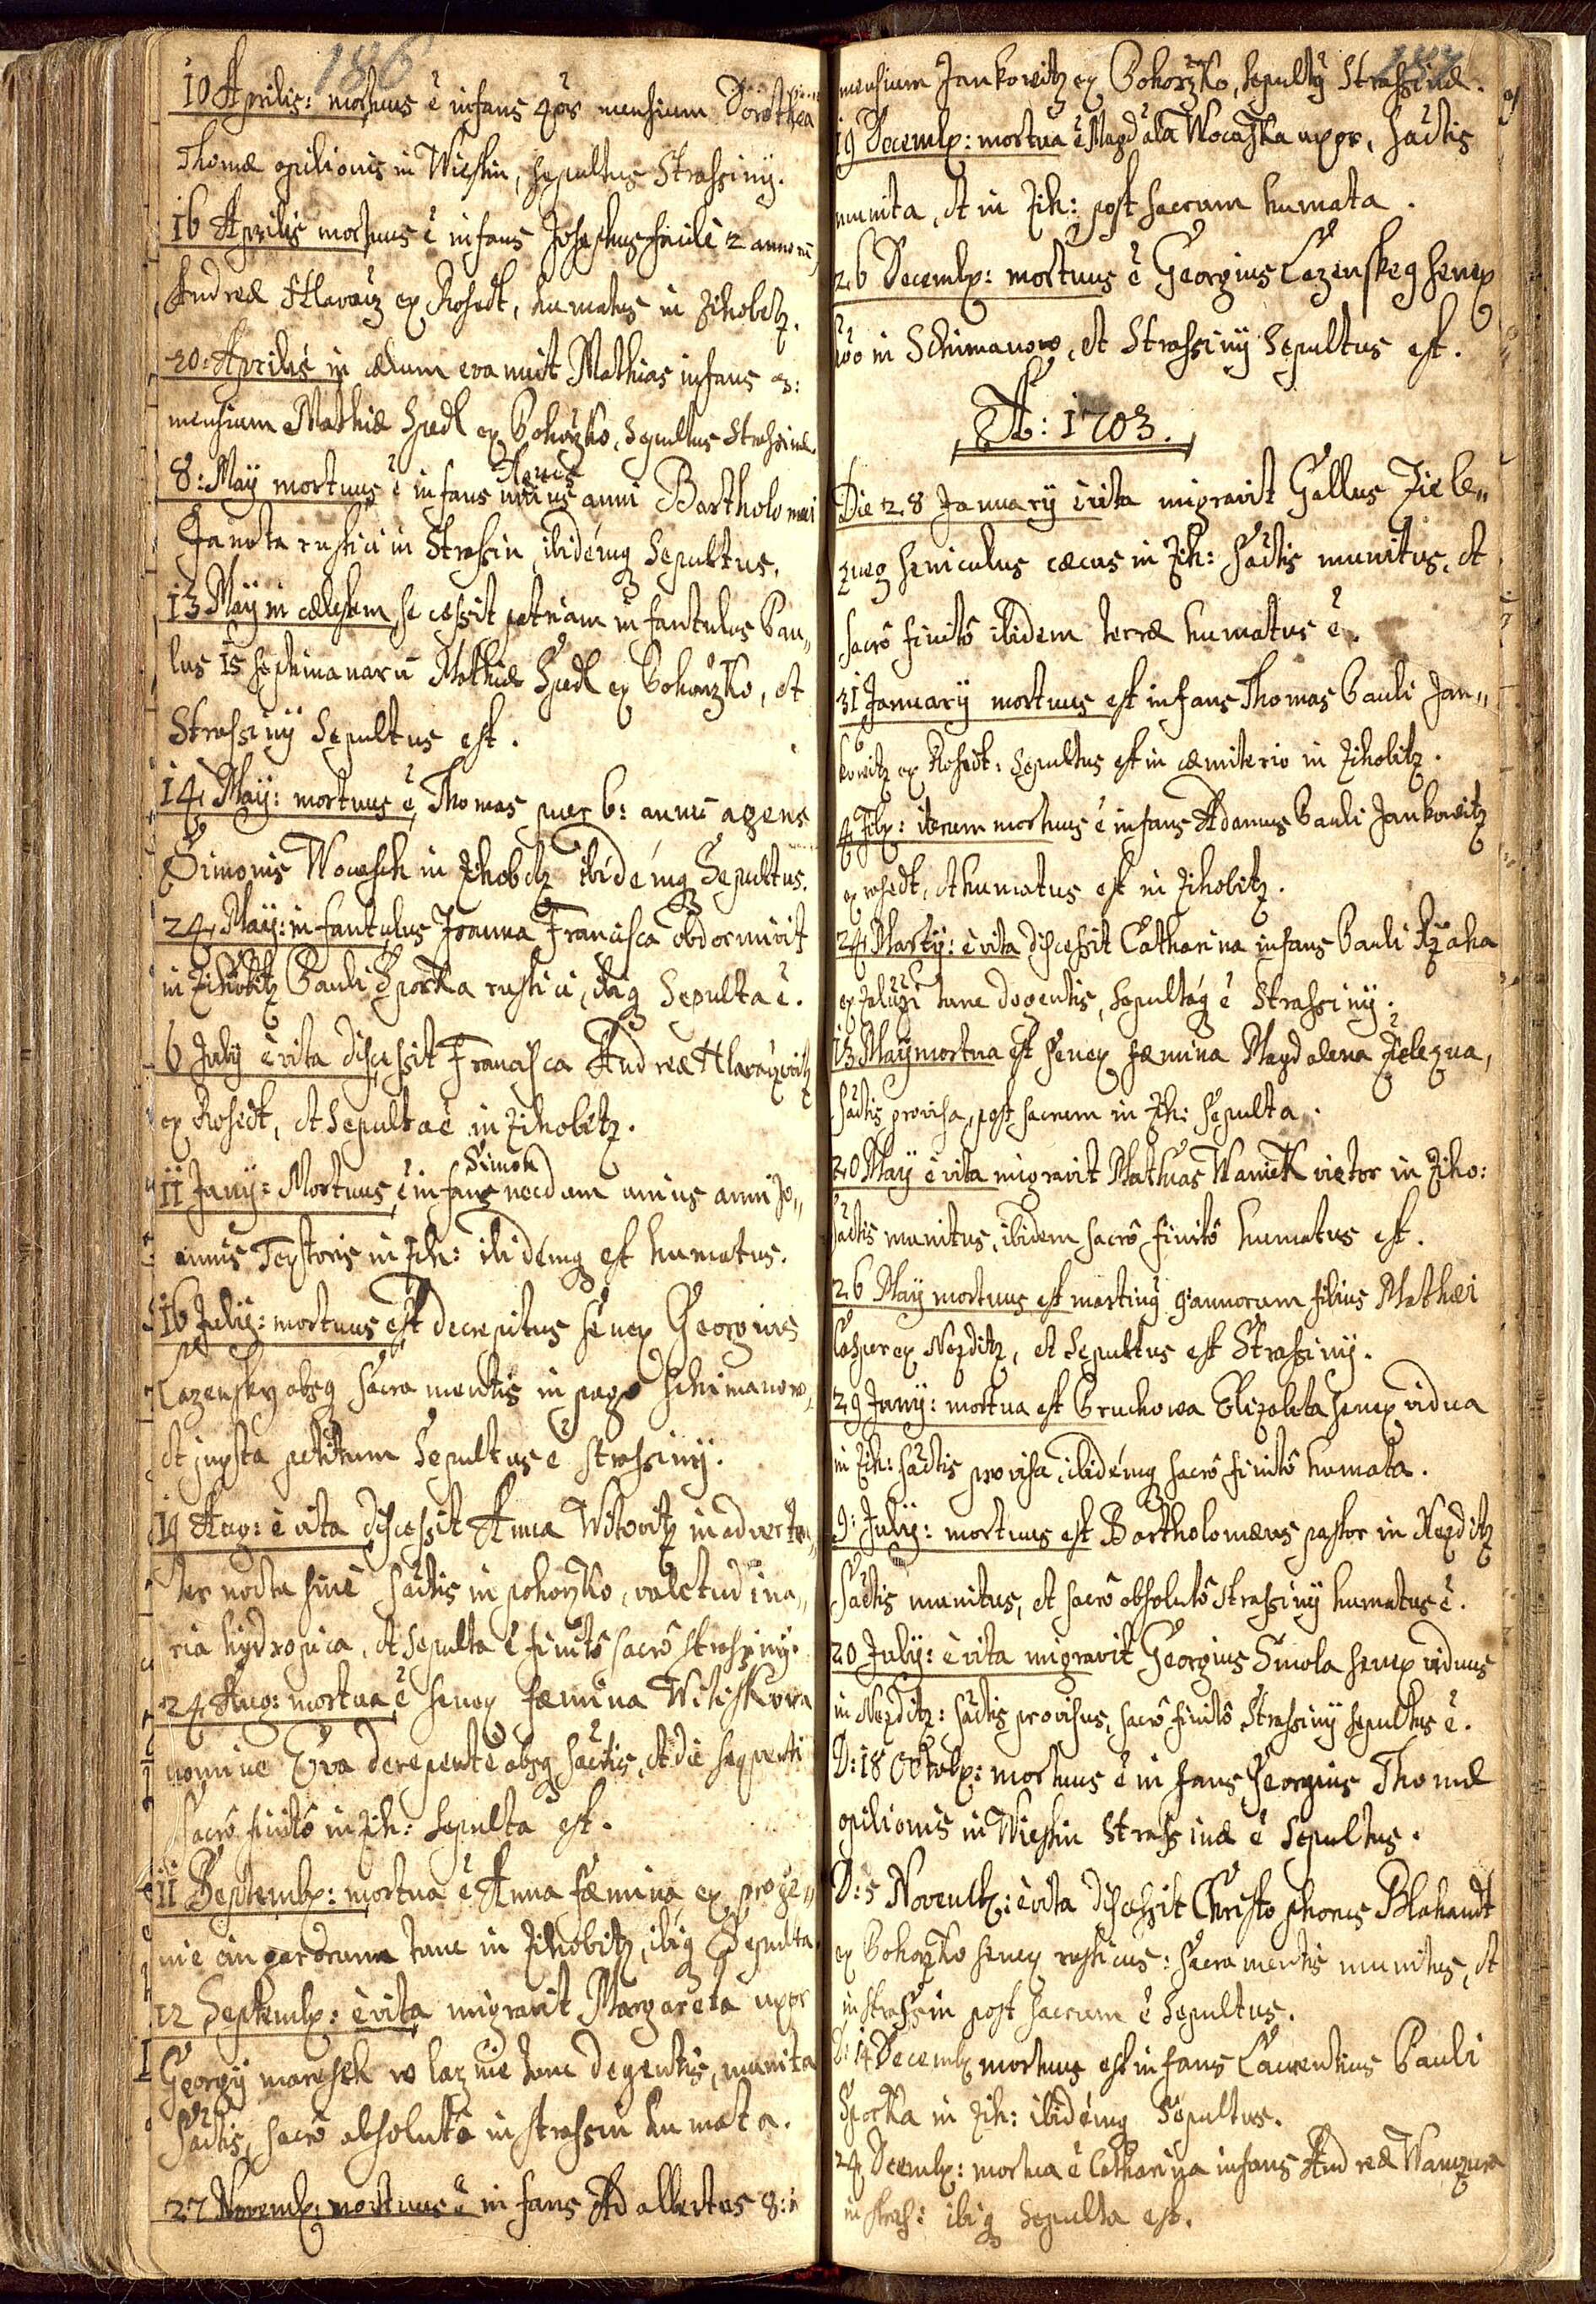 186
10 Aprilis: mortuus ē infans 4or mensium Dorothea
Thomæ opilionis in Wießin, sepultus Strassiny.
16 Aprilis mortuus ē infans Josephus 2 annorū
Andreæ Hlawacz ex Rosedt, humatus in Zihobetz.
20: Aprilis in cælum evanuit Mathias infans 3:
mensium Mathiæ Spedl ex Bohorzko, Sepultus Strassinæ.
8: May mortuus ē infans unius anni Bartholomæi
Janota rustici in Strassin, ibidémq Sepultus.
13 Maÿ in cælestem se cessit patriam infantulus Pau„
lus 15 septimanarū Mathiæ Spedl ex Bohorzko, et
Strassinÿ Sepultus est.
14 Maÿ: mortuus ē Thomas puer 6: annū agens
Simonis Wocasek in Zihobetz ibidémq Sepultus.
24 Maÿ: infantulus Joanna Francisca obdormivit
in Zihobitz Pauli Sporka rustici, ibiq Sepulta ē.
6 July è vita discessit Francisca Andreæ Hlawacz
ex Rosedt, et Sepulta ē in Zihobetz.
Simon
11 Juny: Mortuus ē infans necdum unius anni Jo„
annis Textoris in Zih: ibidémq est humatus.
16 July: mortuus est decrepitus senex Georgius
Lazensky absq Sacramentis in pago Schimanow,
et juxta petitum Sepultus ē Strassinÿ.
19 Aug: è vita discessit Anna Witovitz inadverten„
ter nocta sine Sāctis in pohorzko, valetudina„
ria hÿdropica, et Sepulta ē finitô sacrô Strassinÿ.
24 Aug: mortua ē senex fæmina
nomine Eva derepentè absq Sāctis, et die sequenti
Sacrô finitô in Zih: Sepulta est.
11 Septembr: mortua ē Anna fæmina ex proge„
nie cingarorum tunc in Zihobitz, ibiq Sepulta
12 Septembr: è vita migravit Margareta uxor
Georgÿ maressek w laznie tunc degentis, munita
Sāctis, sacrô absolutô in strassin humata.
27 Novemb: mortuus ē infans Adalbertus 8:
mensium Jankowitz ex Bohorzko, sepultꝰ Strassinæ.
19 Decembr: mortua ē Magdalā Wocaska uxor, Sāctis
munita, et in Zih: post sacrum humata.
26 Decembr: mortuus ē Georgius Lazenskeg senex
in Schimanow, et Strassinÿ Sepultus est.
A: 1703.
Die 28 January è vita migravit Gallus Ziele„
zneg seniculus cæcus in Zih: Sāctis munitus, et
sacrô finitô ibidem terræ humatus ē.
31 January mortuus est infans Thomas Pauli Jan„
kowitz ex Rosedt: Sepultus est in cæmiterio in Zihobitz.
4 Febr: iterum mortuus ē infans Adamus Pauli Jankowitz
ex rosedt, et humatus est in Zihobitz.
24 Martÿ: è vita discessit Catharina infans Pauli Rzaha
ex Jaluzi tunc degentis, Sepultáq ē Strassinÿ.
13 May mortua est Senex fæmina Magdalena Zielezna,
Sāctis provisa, post sacrum in Zih: Sepulta.
20 May è vita migravit Mathias Waniek vietor in Ziho:
Sāctis munitus, ibidem sacrô finitô humatus est.
26 Maÿ mortuus est martinꝰ 9 annorum filius Mathæi
Casper ex Nezditz, et Sepultus est Strassinÿ.
29 Junÿ: mortua est Bruchowa Elizabeta senex vidua
in Zih: Sāctis provisa, ibidémq sacrô finitô humata.
9: Julÿ: mortuus est Bartholomæus pastor in Nezditz
Sāctis munitus, et sacrô absolutô Strassinÿ humatus ē.
20 July: è vita migravit Georgius Smola senex viduus
in Nezditz: Sāctis provisus, sacrô finitô Strassinÿ sepultus ē.
D: 18 Octobr: mortuus ē infans Georgius Thomæ
opilionis in Wiessin Strassinæ ē Sepultus.
D: 5 Novembr: è vita discessit Christophorus Blahaudt
ex Bohorzko senex rusticus: Sacramentis munitus, et
in strassin post sacrum ē Sepultus.
D: 14 Decembr mortuus est infans Laurentius Pauli
Sporka in Zih: ibidémq Sepultus.
24 Decembr: mortua ē Catharina infans Andreæ Wanzura
in strass: ibiq Sepulta est.